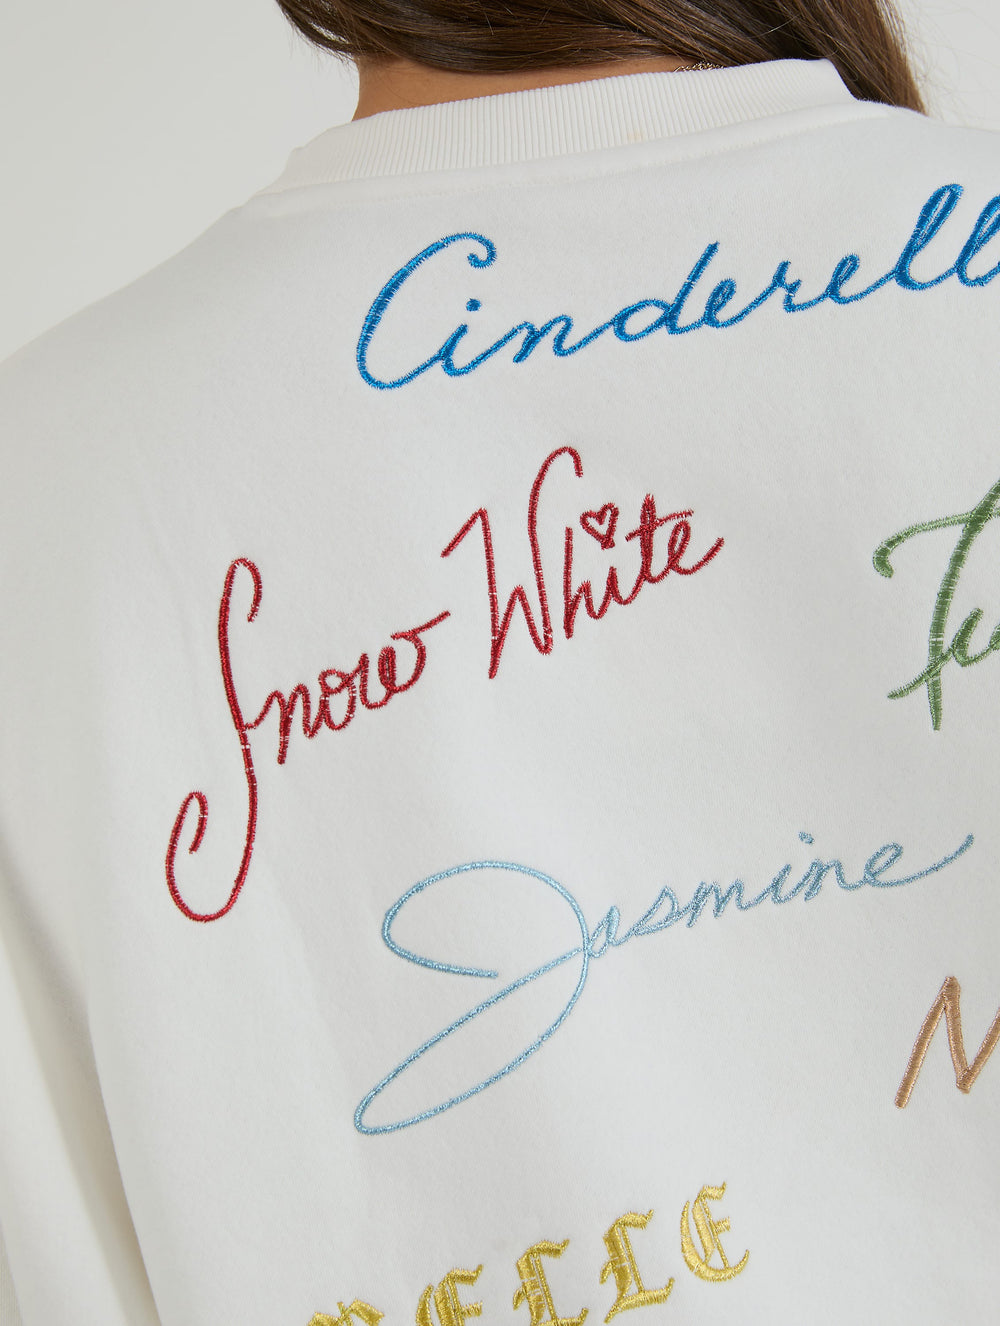 Cinderell
Snow White
Jasmine
BELLE